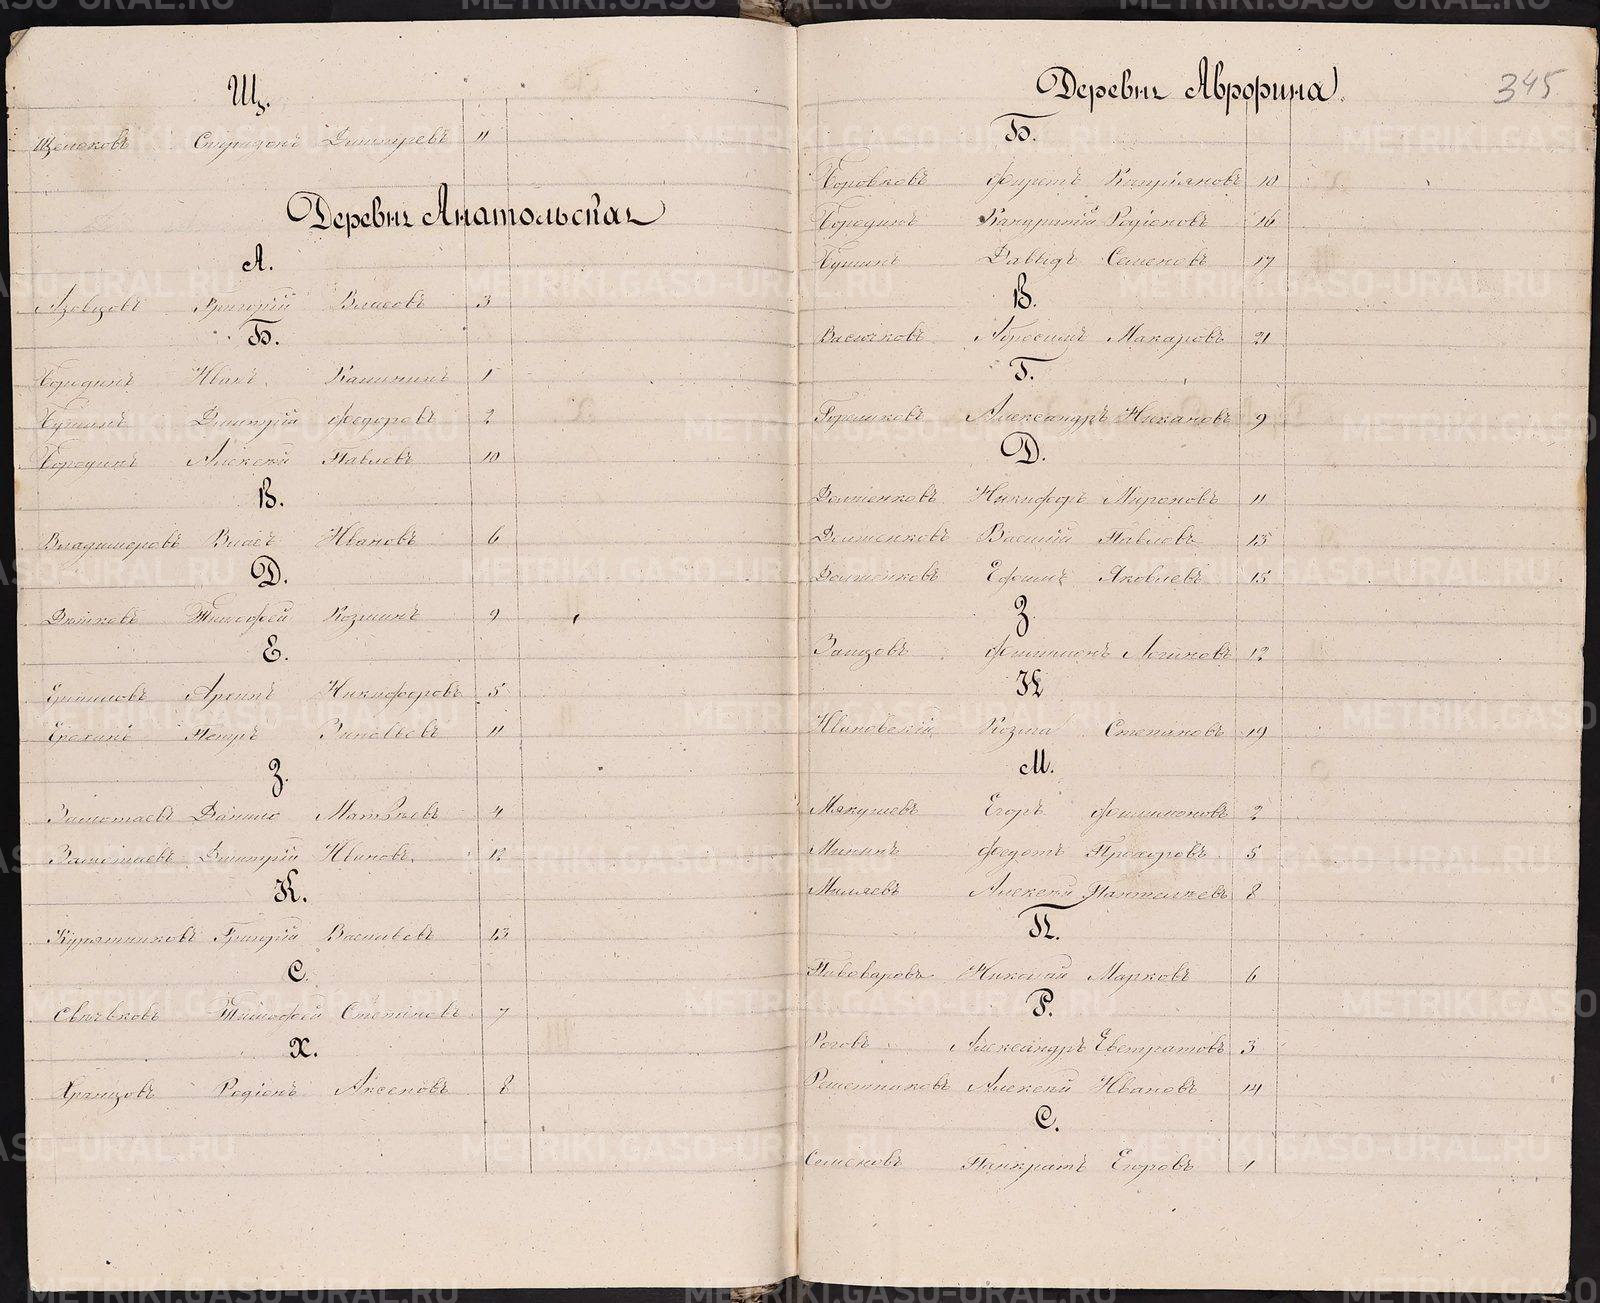 Щ.
Щелоковъ Спиридонъ Дмитріевъ 11
Деревня Анатольская
А.
Азовцовъ Григорій Власовъ 3
Б.
Бородинъ Иванъ Калининъ 1
Бушинъ Дмитрій Федоровъ 2
Бородинъ Алексѣй Павловъ 10
В.
Владимеровъ Власъ Ивановъ 6
Д.
Тимофей Козминъ 9
Е.
Архипъ Никифоровъ 5
Ерохинъ Петръ Зиновьевъ 11
З.
Золотаевъ Данило Матвѣевъ 4
Золотаевъ Дмитрій Ивановъ 12
К.
Курятниковъ Григорій Васильевъ 13
С.
Тимофей Степановъ 7
Х.
Родіонъ Аксеновъ 8
Деревня Аврорина
345
Б.
Боровковъ Фирстъ Кипріяновъ 10
Бородинъ Кандратій Родіоновъ 16
Бушинъ Давыдъ Семеновъ 17
В.
Васичковъ Абросимъ Макаровъ 21
Г.
Горшковъ Александръ Никановъ 9
Д.
Долженковъ Никифоръ Мироновъ 11
Долженковъ Василій Павловъ 13
Долженковъ Ефимъ Яковлевъ 15
З.
Филимонъ Логиновъ 12
И
Ивановскій Козма Степановъ 19
М.
Мякушевъ Егоръ Филимоновъ 2
Мининъ Федотъ Прохоровъ 5
Миляевъ Алексѣй Пантелѣевъ 8
П.
Пивоваровъ Николай Марковъ 6
Р.
Роговъ Александръ Евстратовъ 3
Решетниковъ Алексѣй Ивановъ 14
С.
Семеновъ Панкратъ Егоровъ 1
METRIKI.GASO-URAL.RU